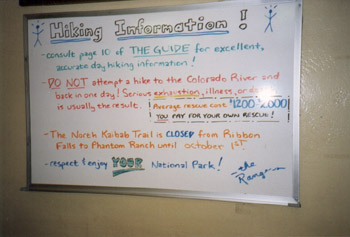 Hiking Information!
- consult page 10 of THE GUIDE for excellent,
accurate day hiking information!
- DO NOT attempt a hike to the Colorado River and
back in one day! Serious exhaustion, illness, or death
is usually the result.
Average rescue cost $1200-2,000
YOU PAY FOR YOUR OWN RESCUE!
- The North Kaibab Trail is CLOSED from Ribbon
Falls to Phantom Ranch until October 1st.
- respect & enjoy YOUR National Park!
- the Rangers